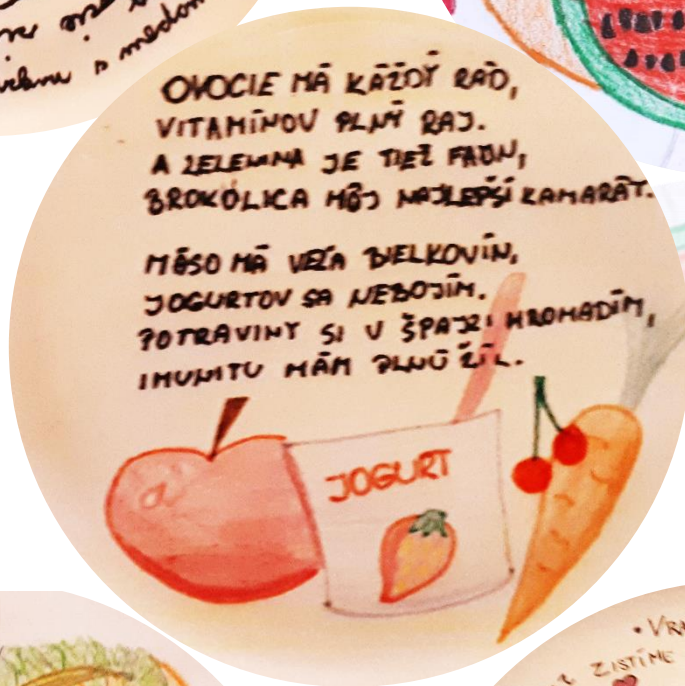 s medom
OVOCIE MÁ KAŽDÝ RÁD,
VITAMÍNOV PLNÝ RAJ.
A ZELENINA JE TIEŽ FAJN,
BROKOLICA MÔJ NAJLEPŠÍ KAMARÁT.
MÄSO MÁ VEĽA BIELKOVÍN,
JOGURTOV SA NEBOJÍM.
POTRAVINY SI V ŠPAJZI HROMADÍM,
IMUNITU MÁM PLNÚ ŽÍL.
JOGURT
ZISTÍME